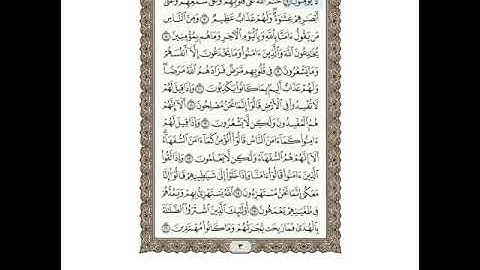 لَا يُؤْمِنُونَ ٦ خَتَمَ ٱللَّهُ عَلَىٰ قُلُوبِهِمْ وَعَلَىٰ سَمْعِهِمْ وَعَلَىٰٓ
أَبْصَٰرِهِمْ غِشَٰوَةٌ وَلَهُمْ عَذَابٌ عَظِيمٌ ٧ وَمِنَ ٱلنَّاسِ
مَن يَقُولُ ءَامَنَّا بِٱللَّهِ وَبِٱلْيَوْمِ ٱلْءَاخِرِ وَمَا هُم بِمُؤْمِنِينَ ٨
يُخَٰدِعُونَ ٱللَّهَ وَٱلَّذِينَ ءَامَنُوا۟ وَمَا يَخْدَعُونَ إِلَّآ أَنفُسَهُمْ
وَمَا يَشْعُرُونَ ٩ فِى قُلُوبِهِم مَّرَضٌ فَزَادَهُمُ ٱللَّهُ مَرَضًا
وَلَهُمْ عَذَابٌ أَلِيمٌۢ بِمَا كَانُوا۟ يَكْذِبُونَ ١٠ وَإِذَا قِيلَ لَهُمْ
لَا تُفْسِدُوا۟ فِى ٱلْأَرْضِ قَالُوٓا۟ إِنَّمَا نَحْنُ مُصْلِحُونَ ١١ أَلَآ إِنَّهُمْ
هُمُ ٱلْمُفْسِدُونَ وَلَٰكِن لَّا يَشْعُرُونَ ١٢ وَإِذَا قِيلَ لَهُمْ
ءَامِنُوا۟ كَمَآ ءَامَنَ ٱلنَّاسُ قَالُوٓا۟ أَنُؤْمِنُ كَمَآ ءَامَنَ ٱلسُّفَهَآءُ
أَلَآ إِنَّهُمْ هُمُ ٱلسُّفَهَآءُ وَلَٰكِن لَّا يَعْلَمُونَ ١٣ وَإِذَا لَقُوا۟
ٱلَّذِينَ ءَامَنُوا۟ قَالُوٓا۟ ءَامَنَّا وَإِذَا خَلَوْا۟ إِلَىٰ شَيَٰطِينِهِمْ قَالُوٓا۟ إِنَّا
مَعَكُمْ إِنَّمَا نَحْنُ مُسْتَهْزِءُونَ ١٤ ٱللَّهُ يَسْتَهْزِئُ بِهِمْ وَيَمُدُّهُمْ
فِى طُغْيَٰنِهِمْ يَعْمَهُونَ ١٥ أُو۟لَٰٓئِكَ ٱلَّذِينَ ٱشْتَرَوُا۟ ٱلضَّلَٰلَةَ
بِٱلْهُدَىٰ فَمَا رَبِحَت تِّجَٰرَتُهُمْ وَمَا كَانُوا۟ مُهْتَدِينَ ١٦
٣